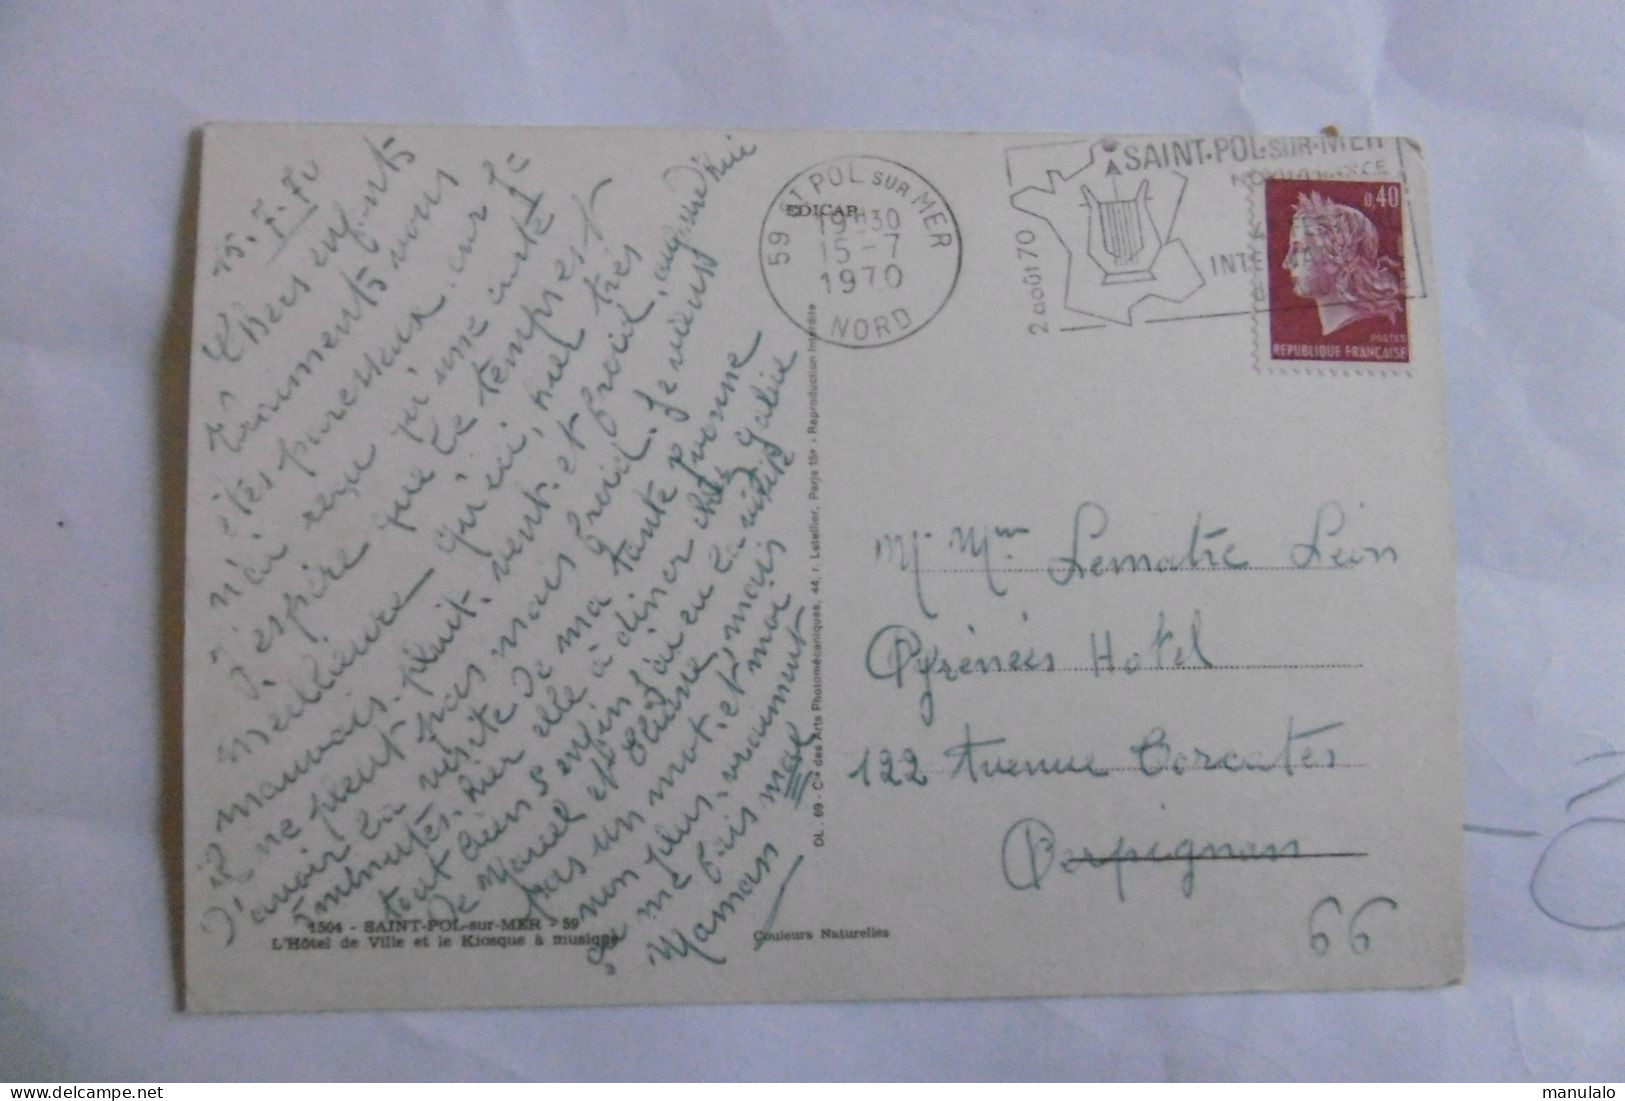 15.7.70
Chers enfants
vraiments vous
êtes paresseux. car je
n'ai reçu qu'une carte
J'espère que le temps est
meilleure qu'ici, quel très
mauvais. pluit. vent. et froid, aujourd'hui
il ne pleut pas mais froid. Je viens
d'avoir la visite de ma tante Yvonne
minutes. hier elle à diner chez
tout bien enfin j'ai eu la visite
de Marcel et mais
pas un mot. et moi
non plus, vraiment
ça me fais mal
Maman
1504 - SAINT-POL-sur-MER - 59
L'Hôtel de Ville et le Kiosque à musique
Couleurs Naturelles
EDICAP
DL. 69 - Cie des Arts Photomécaniques, 44, r. Letellier, Paris 15e - Reproduction Interdite
59 ST POL SUR MER
19H30
15-7
1970
NORD
2 août 70
SAINT-POL-SUR-MER
0,40
POSTES
REPUBLIQUE FRANÇAISE
Mr Mme Lematre Léon
Pyrénées Hotel
122 Avenue
Perpignan
66
manulalo